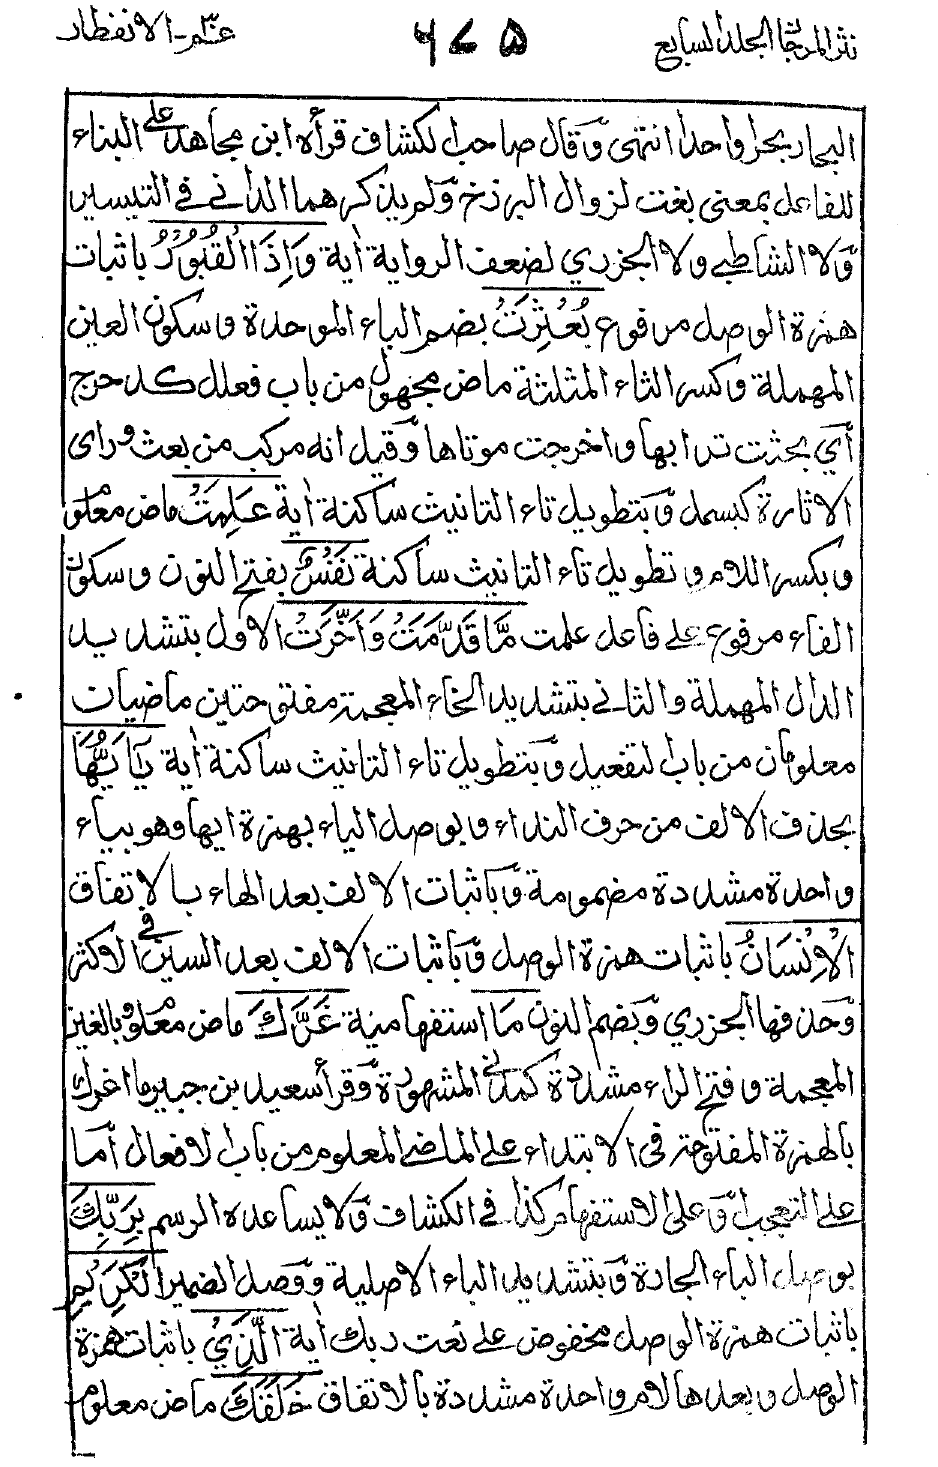 نثر المرجان المجلد السابع ٦٧٥ عمّ - الانفطار
البحار بحرا واحدا انتهى وقال صاحب الكشاف قرأه ابن مجاهد على البناء
للفاعل بمعنى بغت لزوال البرزخ ولم يذكرهما الداني في التيسير
ولا الشاطبي ولا الجزري لضعف الرواية اية وَإِذَا الْقُبُورُ باثبات
همزة الوصل مرفوع بُعْثِرَتْ بضم الباء الموحدة وسكون العين
المهملة وكسر الثاء المثلثة ماض مجهول من باب فعلل كدحرج
أي بحثت ترابها واخرجت موتاها وقيل انه مركب من بعث وراى
الاثارة كبسمل وبتطويل تاء التانيث ساكنة اية عَلِمَتْ ماض معلوم
وبكسر اللام وتطويل تاء التانيث ساكنة نَفْسٌ بفتح النون وسكون
الفاء مرفوع على فاعل علمت مَّا قَدَّمَتْ وَأَخَّرَتْ الاول بتشديد
الدال المهملة والثاني بتشديد الخاء المعجمة مفتوحتين ماضيات
معلومان من باب التفعيل وبتطويل تاء التانيث ساكنة اية يَآيُّهَا
بحذف الالف من حرف النداء وبوصل الياء بهمزة ايها وهو بياء
واحدة مشددة مضمومة وباثبات الالف بعد الهاء بالاتفاق
الْاِنْسَانُ باثبات همزة الوصل وباثبات الالف بعد السين في الاكثر
وحذفها الجزري وبضم النون مَا استفهامية غَرَّكَ ماض معلوم بالغين
المعجمة وفتح الراء مشددة كمد في المشهورة وقرأ سعيد بن جبير ما اغرك
بالهمزة المفتوحة في الابتداء على الماضي المعلوم من باب الافعال أما
على التعجب أو على الاستفهام كذا في الكشاف ولا يساعده الرسم بِرَبِّكَ
بوصل الباء الجارة وبتشديد الباء الاصلية ووصل الضمير الْكَرِيمِ
باثبات همزة الوصل مخفوض على نعت ربك اية الَّذِيْ باثبات همزة
الوصل وبعدها لام واحدة مشددة بالاتفاق خَلَقَكَ ماض معلوم